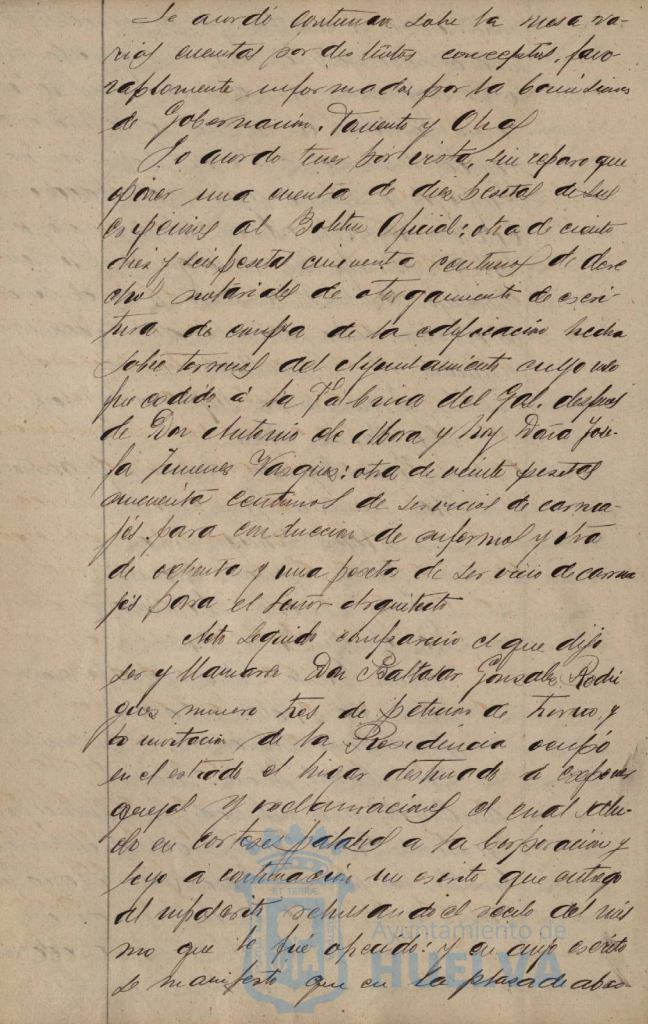 Se acordó continuen sobre la mesa va-
rias cuentas por distintos conceptos, favo
rablemente informadas por las Comisiones
de Gobernacion, Fomento y Obras
Se acordo tener por vista, sin reparo que
oponer una cuenta de diez pesetas de sus
cripciones al Boletin Oficial: otra de ciento
diez y seis pesetas cincuenta centimos de dere
chos notariales de otorgamiento de escri-
tura de compra de la edificacion hecha
sobre terrenos del Ayuntamiento cuyo uso
fue cedido á la Fabrica del Gas, despues
de Don Antonio de Mora y hoy Doña Jose-
fa Jimenes Vasques: otra de veinte pesetas
cincuenta centimos de servicios de carrua-
jes para conduccion de enfermos y otra
de ochenta y una peseta de servicio de carrua
jes para el Señor Arquitecto
Acto seguido comparecio el que dijo
ser y llamarse Don Baltasar Gonzales Rodri
gues numero tres de peticion de turno, y
á invitacion de la Presidencia ocupó
en el estrado el lugar destinado á exponer
quejas y reclamaciones el cual salu-
do en corteses palabras á la Corporacion y
leyo a continuacion un escrito que entrego
al infrascrito rehusando el recibo del mis
mo que le fué ofrecido: y en cuyo escrito
se manifesto que en la plasa de abas-
Ayuntamiento de
HUELVA